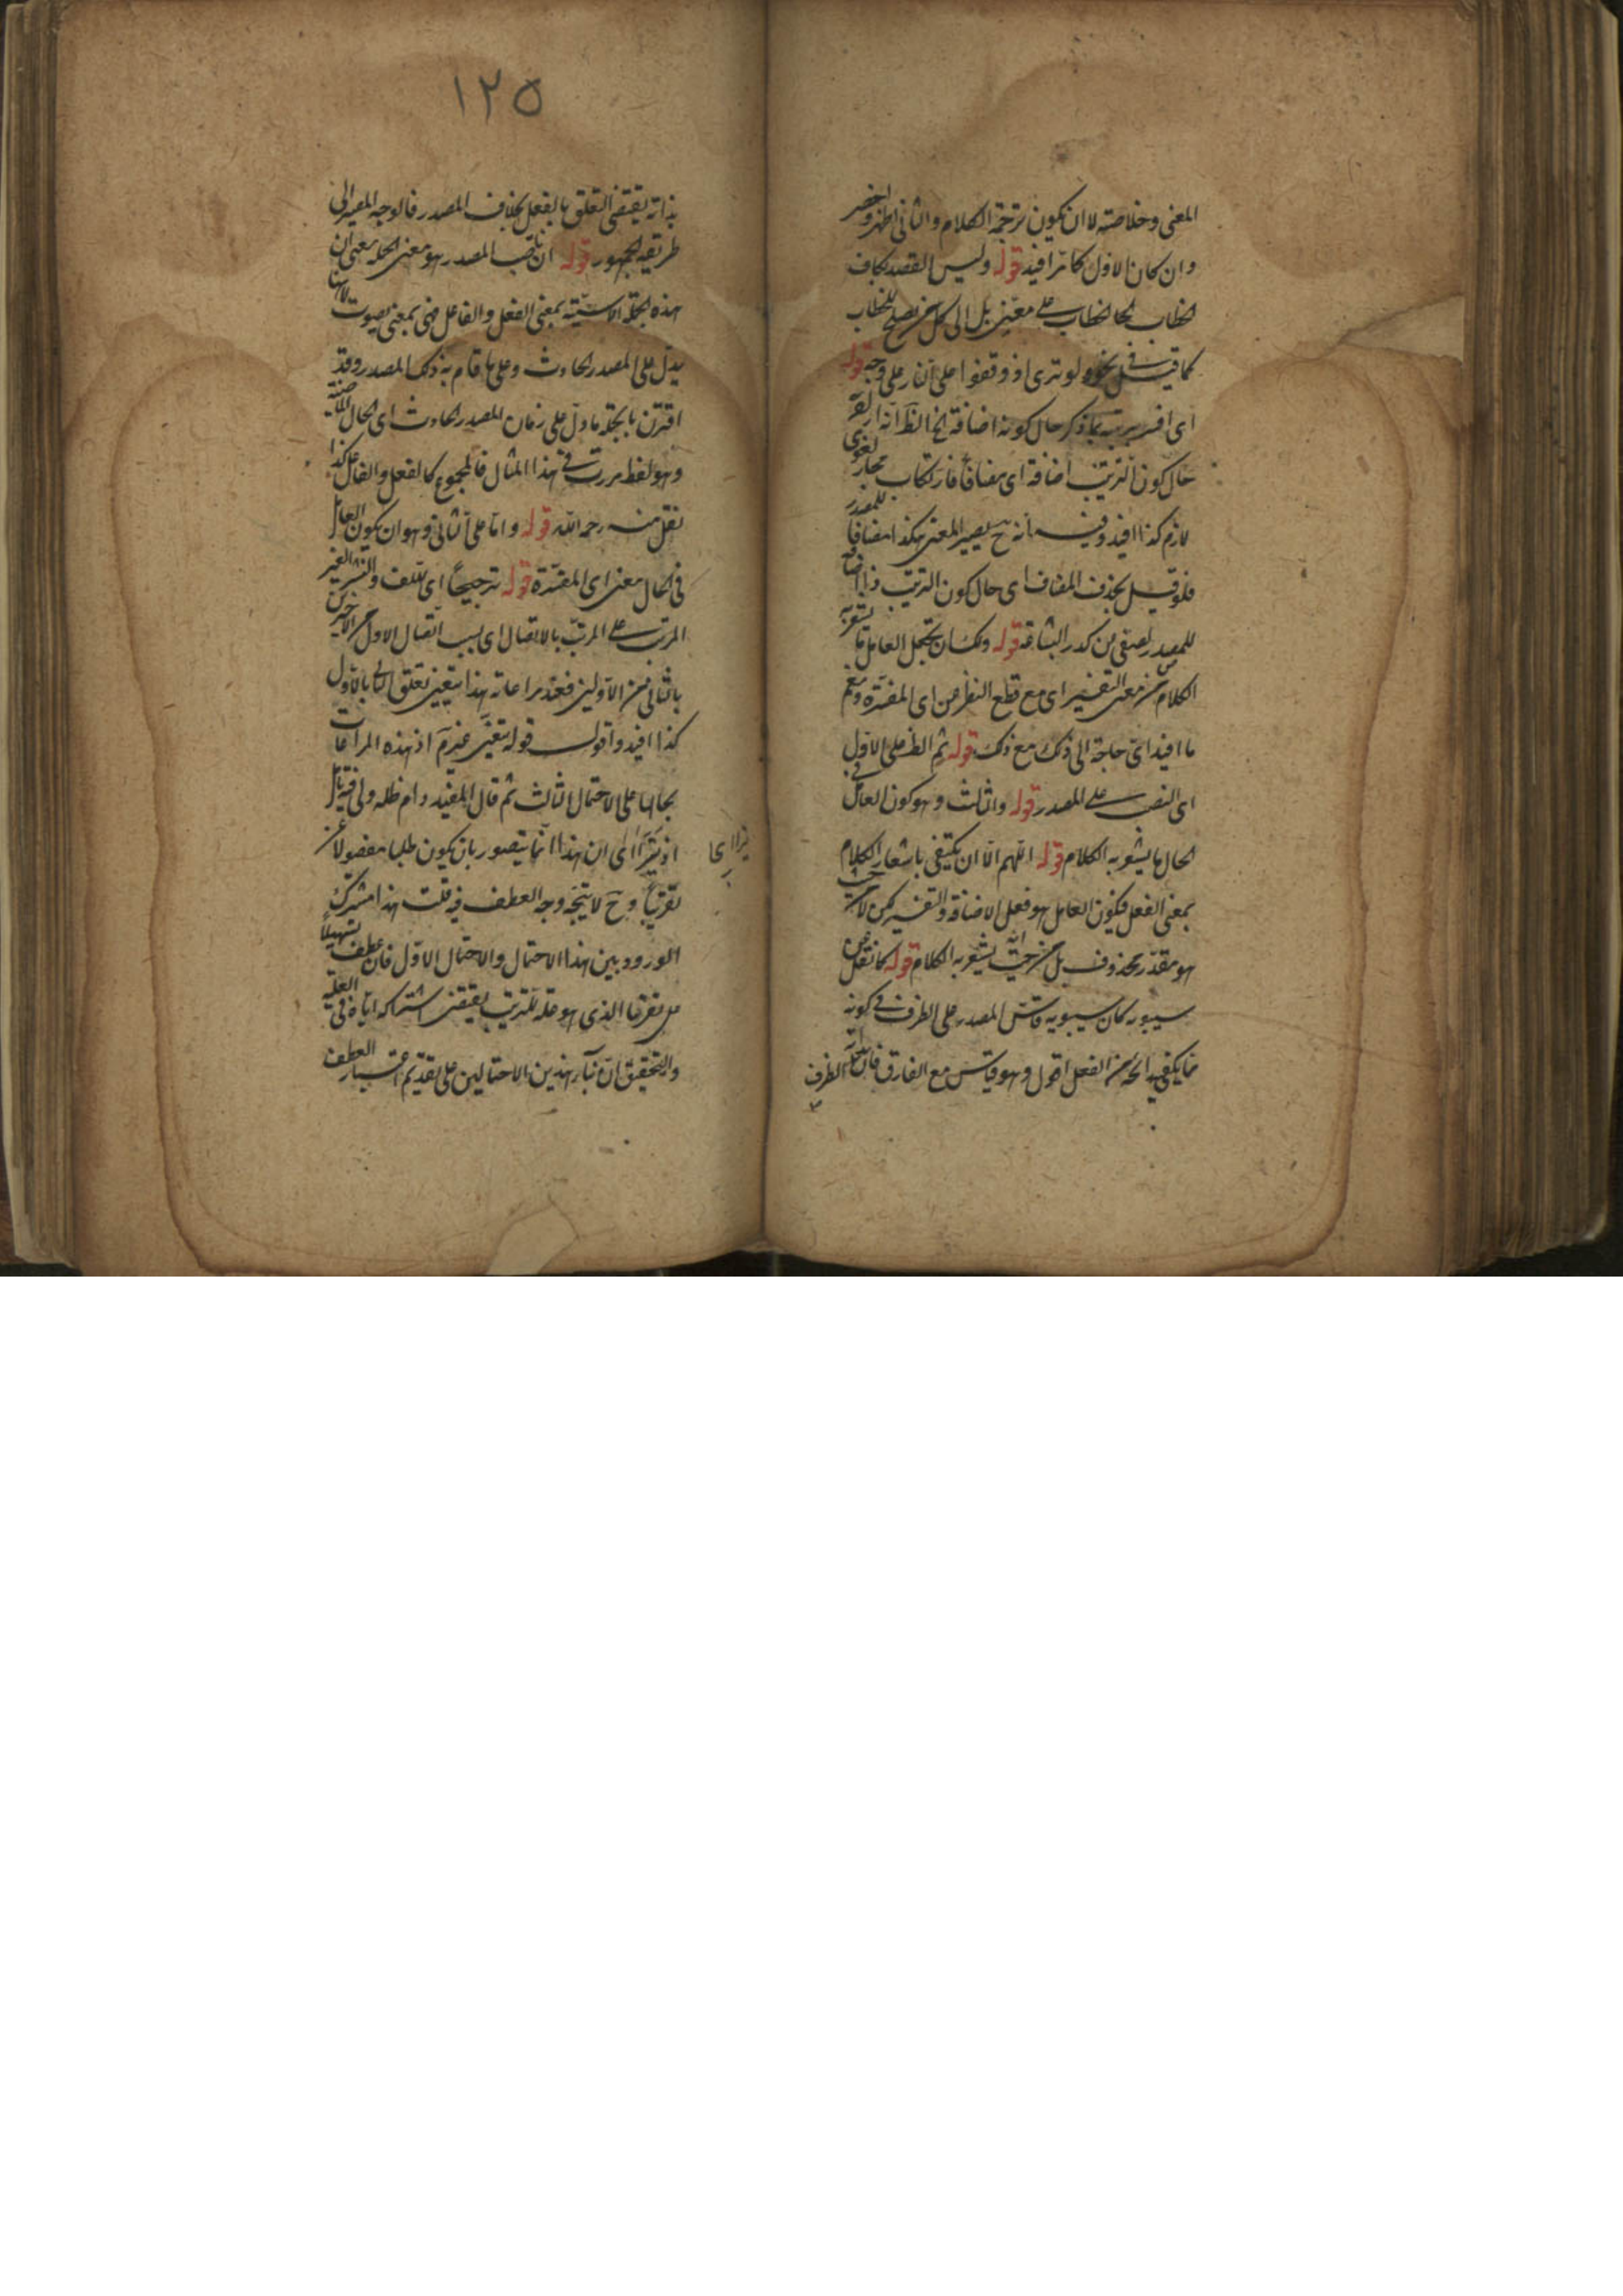 المعنى وخلاصته لا ان يكون ترجمة الكلام والثانى اظهر واخصر
وان كان الاول كا افيد قوله وليس القصد بكاف
الخطاب الخطاب على معين بل الى كل من يصلح للخطاب
كما قيل فى نحو ولو ترى اذ وقفوا على النار على وجه قوله
اى افسر بما ذكر حال كونه اضافة الخ الظ انه اراد
حال كون الترتيب اضافة اى مضافا فارتكاب مجاز لغوى
لازم كذا افيد وفيه انه ح يصير المعنى هكذا مضافا للمصدر
فلو قيل بحذف المضاف اى حال كون الترتيب ذا اضافة
للمصدر لصفى من كدر البشاعة قوله ولك ان تجعل العامل ما يشعر به
الكلام من معنى التفسير اى مع قطع النظر عن اى المفسرة
ما افيد اى حاجة الى ذلك مع ذلك قوله ثم الظ على الاول
اى النصب على المصدر قوله والثالث وهو كون العامل فى
الحال ما يشعر به الكلام قوله اللهم الا ان يكتفى باشعار الكلام
بمعنى الفعل فيكون العامل هو فعل الاضافة والتفسير لكن لا من حيث
هو مقدر محذوف بل من حيث انه يشعر به الكلام قوله كما نقل عن
سيبويه كان سيبويه قاس المصدر على الظرف فى كونه
مما يكفيه رائحة من الفعل اقول وهو قياس مع الفارق فان الظرف
١٢٥
بذاته يقتضى التعلق بالفعل بخلاف المصدر فالوجه المصير الى
طريقة الجمهور قوله ان ناصب المصدر هو معنى الجملة يعنى ان
هذه الجملة الاسمية بمعنى الفعل والفاعل فهى بمعنى يصوت لانها
يدل على المصدر الحادث وعلى ما قام به ذلك المصدر وقد
اقترن بالجملة ما دل على زمان المصدر الحادث اى الحال
وهو لفظ مررت فى هذا المثال فالمجموع كالفعل والفاعل كذا
نقل منه رحمه الله قوله واما على الثانى وهو ان يكون العامل
فى الحال معنى اى المفسرة قوله ترجيحا اى للف والنشر الغير
المرتب على المرتب بالاتصال اى بسبب اتصال الاول من الاخيرين
بالثانى من الاولين فعند مراعاة هذا يتعين تعلق الثانى بالاول
كذا افيد واقول قوله يتعين غير م اذ هذه المراعات
بحالها على الاحتمال الثالث ثم قال المفيد دام ظله ولى فيه تأمل
اى ان هذا انما يتصور بان يكون طلبا مفعولا
وح لا يتجه وجه العطف فيه قلت هذا مشترك
الورود بين هذا الاحتمال والاحتمال الاول فان عطف تسهيلا
الذى هو علة للترتيب يقتضى اشتراكه اياه فى العلية
والتحقيق ان بناء هذين الاحتمالين على تقديم اعتبار العطف